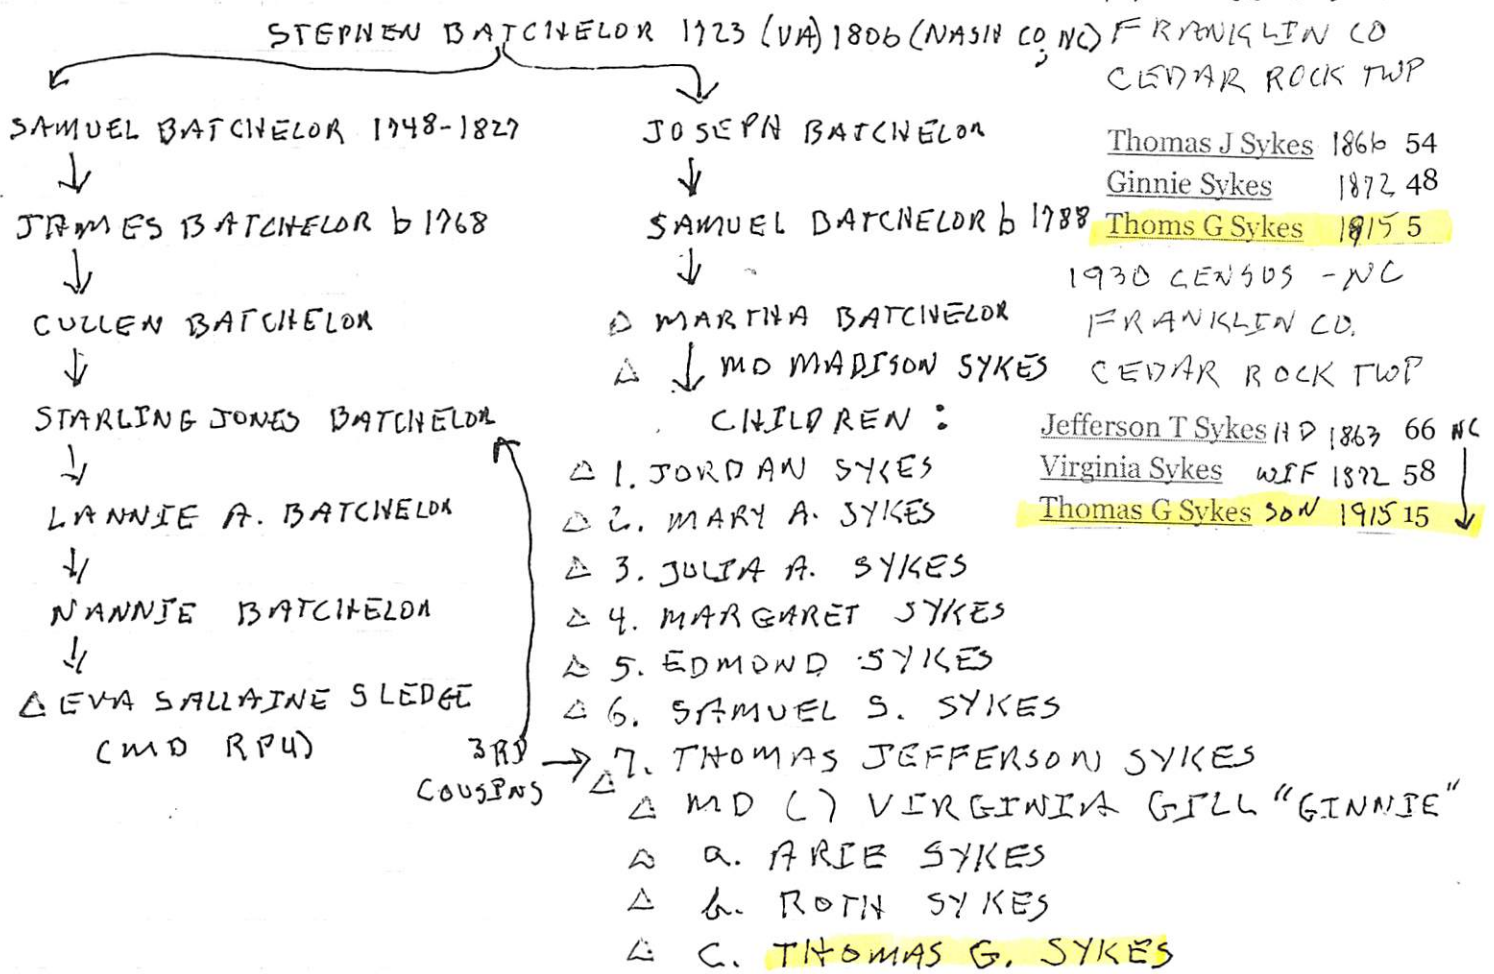 STEPHEN BATCHELOR 1723 (VA) 1806 (NASH CO, NC)
SAMUEL BATCHELOR 1748-1827
JAMES BATCHELOR b 1768
CULLEN BATCHELOR
STARLING JONES BATCHELOR
LANNIE A. BATCHELOR
NANNIE BATCHELOR
△ EVA SALLAINE SLEDGE
(MD RP4)
3RD
COUSINS
JOSEPH BATCHELOR
SAMUEL BATCHELOR b 1788
△ MARTHA BATCHELOR
△ MD MADISON SYKES
CHILDREN:
△ 1. JORDAN SYKES
△ 2. MARY A. SYKES
△ 3. JULIA A. SYKES
△ 4. MARGARET SYKES
△ 5. EDMOND SYKES
△ 6. SAMUEL S. SYKES
△ 7. THOMAS JEFFERSON SYKES
△ MD ( ) VIRGINIA GILL "GINNIE"
△ a. ARIE SYKES
△ b. ROTH SYKES
△ C. THOMAS G. SYKES
FRANKLIN CO
CEDAR ROCK TWP
Thomas J Sykes 1866 54
Ginnie Sykes 1872 48
Thoms G Sykes 1915 5
1930 CENSUS - NC
FRANKLIN CO.
CEDAR ROCK TWP
Jefferson T Sykes HD 1863 66 NC
Virginia Sykes WIF 1872 58
Thomas G Sykes SON 1915 15